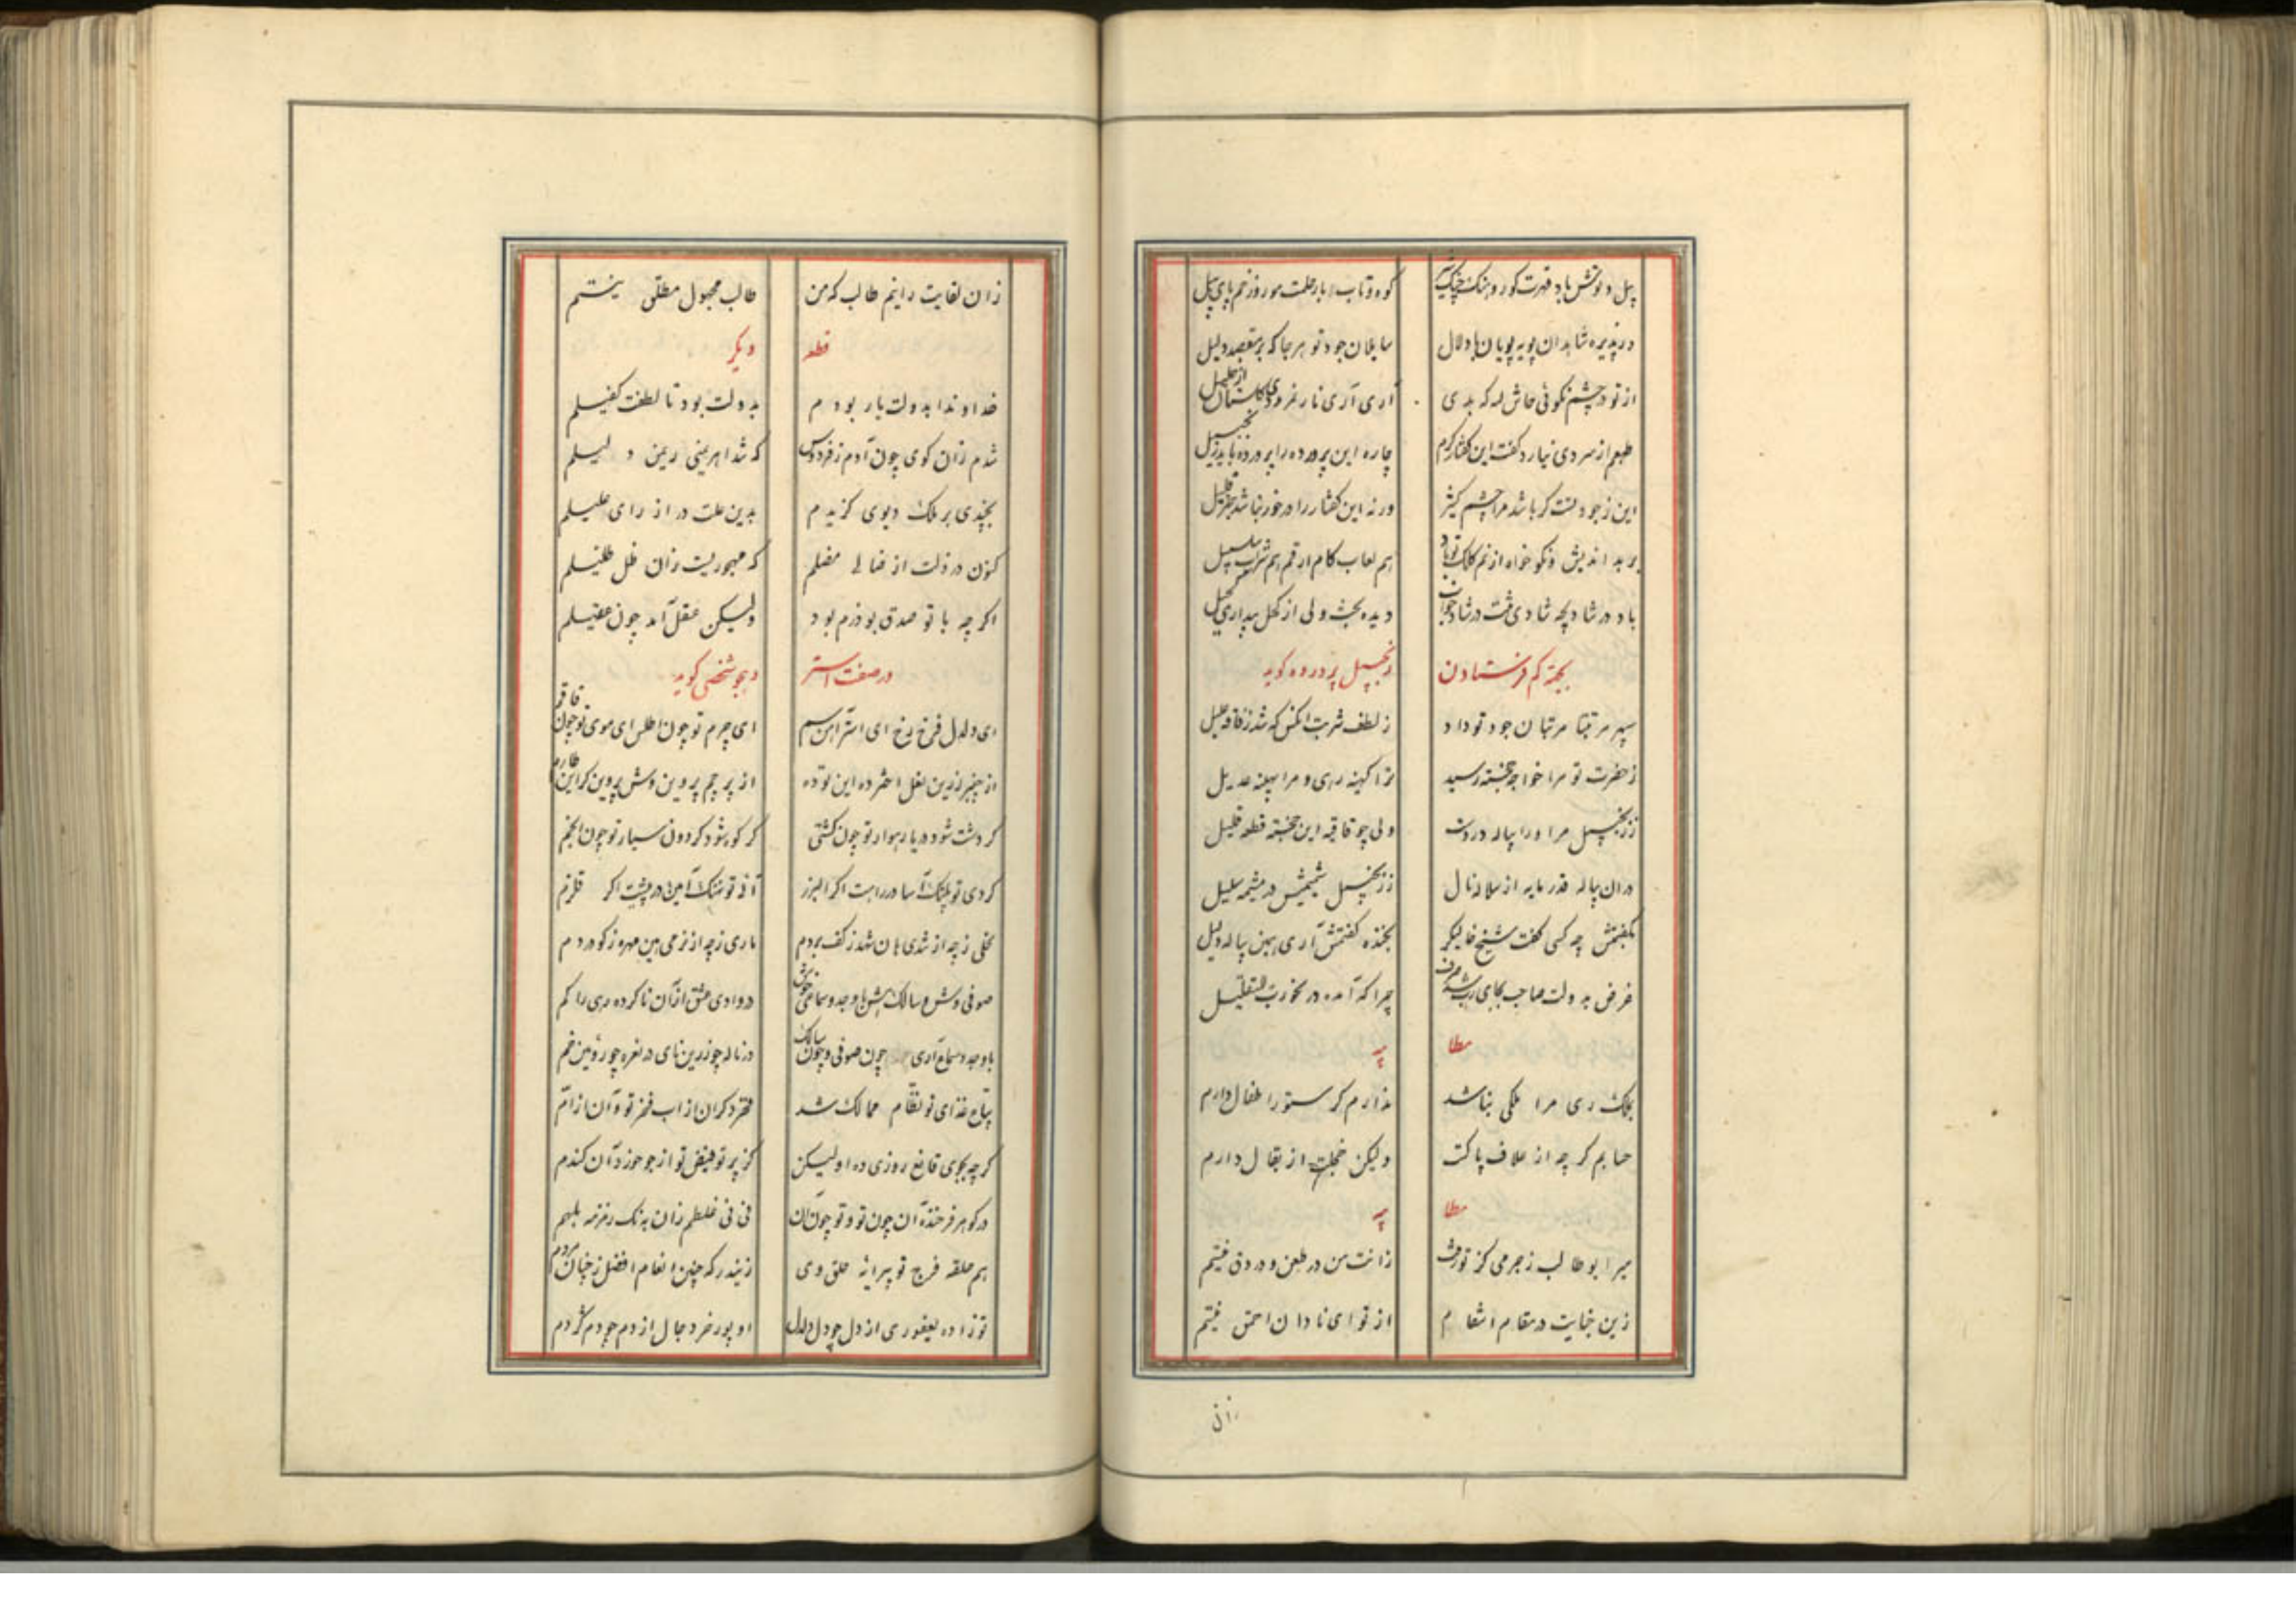 پیل و توش باد قهرت کور و هنک چنک شیر کوه و تاب بار حلمت مور و زخم پای پیل
در پذیره شاهدان پویه پویان با دلال سایلان جود تو هر جا که بر مقصد دلیل
از تو در چشم نکوئی حاش لله که بدی آری آری نار نمرودی کلستان از خلیل
طبعم از سردی نیارد کفت این کفتار کرم چاره این پرورده را پرورده باید زنجبیل
این ز جودت کر باشد مرا چشم کثیر ورنه این کفتار را در خور نباشد جز قلیل
بر بد اندیش و نکو خواه از نم کلک تو باد هم لعاب کام ارقم هم شراب سلسبیل
باد در شادیچه شادی جوان دیده بخت ولی از کحل بیداری کحیل
بجهة کم فرستادن زنجبیل پرورده کوید
سپهر مرتبتا مرتبان جود تو داد ز لطف شربت آنکس که شد ز فاقه علیل
ز حضرت تو مرا خواجه خجسته رسید ترا کهینه رهی و مرا بهینه عدیل
ز زنجبیل مرا ورا پیاله در دست ولی چو قافیه این خجسته قطعه قلیل
در آن پیاله قدر مایه از سلاله نال ز زنجبیل شیمش در مشیمه سلیل
بکفتمش چه کسی کفت شیخ خالیکر بخنده کفتمش آری بهمین پیاله دلیل
غرض به دولت صاحب بجای چرا که آمده در خورت التقلیل
مطا یبه
بملک ری مرا ملکی نباشد ندارم کر ستور اطفال دارم
حسابم کر چه از علاف پاکت ولیکن خجلت از بقال دارم
مطا یبه
میر ابوطالب ز جرمی کز تو رفت زانت من در طعن و در دق نیستم
زین جنایت در مقام انتقام از تو ای نادان احمق نیستم
زان
زان لقایت را نیم طالب که من طالب مجهول مطلق نیستم
قطعه دیکر
خداوندا بدولت یار بودم بدولت بود تا لطفت کفیلم
شدم زان کوی چون آدم ز فردوس که شد اهریمنی ریمن دلیلم
بچندی بر ملک دیوی کزیدم بدین علت در از رای علیلم
کنون در ذلت از ضالی مضلم که مهجوریت زان ظل ظلیلم
اکر چه با تو صدق بوذرم بود ولیکن عقل آمد چون عقیلم
در صفت استر و هجو شخصی کوید
ای دلدل فرخ رخ ای استر آهن سم ای چرم تو چون اطلس ای موی تو چون قاقم
از چنبر زرین نعل اختر ده این توده از پرچم پروین وش پروین کر این طارم
کر دشت شود دریا رهوار تو چون کشتی کر کوه شود کردون سیار تو چون انجم
کردی تو پلنک آسا در راهت اکر البرز آئی تو نهنک آیین در پیشت اکر قلزم
نخلی ز چه از تندی هان شد ز کف بردم ماری ز چه از نرمی هین مهره ز کو در دم
صوفی وش و سالک با وجد و سماعی خوش در وادی عشق از آن ناکرده رهی را کم
با وجد و سماع آری چون صوفی و چون سالک در ناله چو زرین نای در نعره چو روئین خم
پیآع غذای تو نظّام ممالک شد فخر دکران از اب فخر تو و آن از ام
کر چه بجوی قانع روزی ده او لیکن کز پرتو فیض تو از جو خورد آن کندم
در کوهر فرخنده آن چون تو و تو چون آن نی نی غلطم زان به نک رفته بلهم
هم حلقه فرج تو پیرایه حلق وی زیبد که چنین انعام افضل ز چنان مردم
تو زاده یعفوری از دل چو دل دلدل او پور خر دجال از دم چو دم کژدم